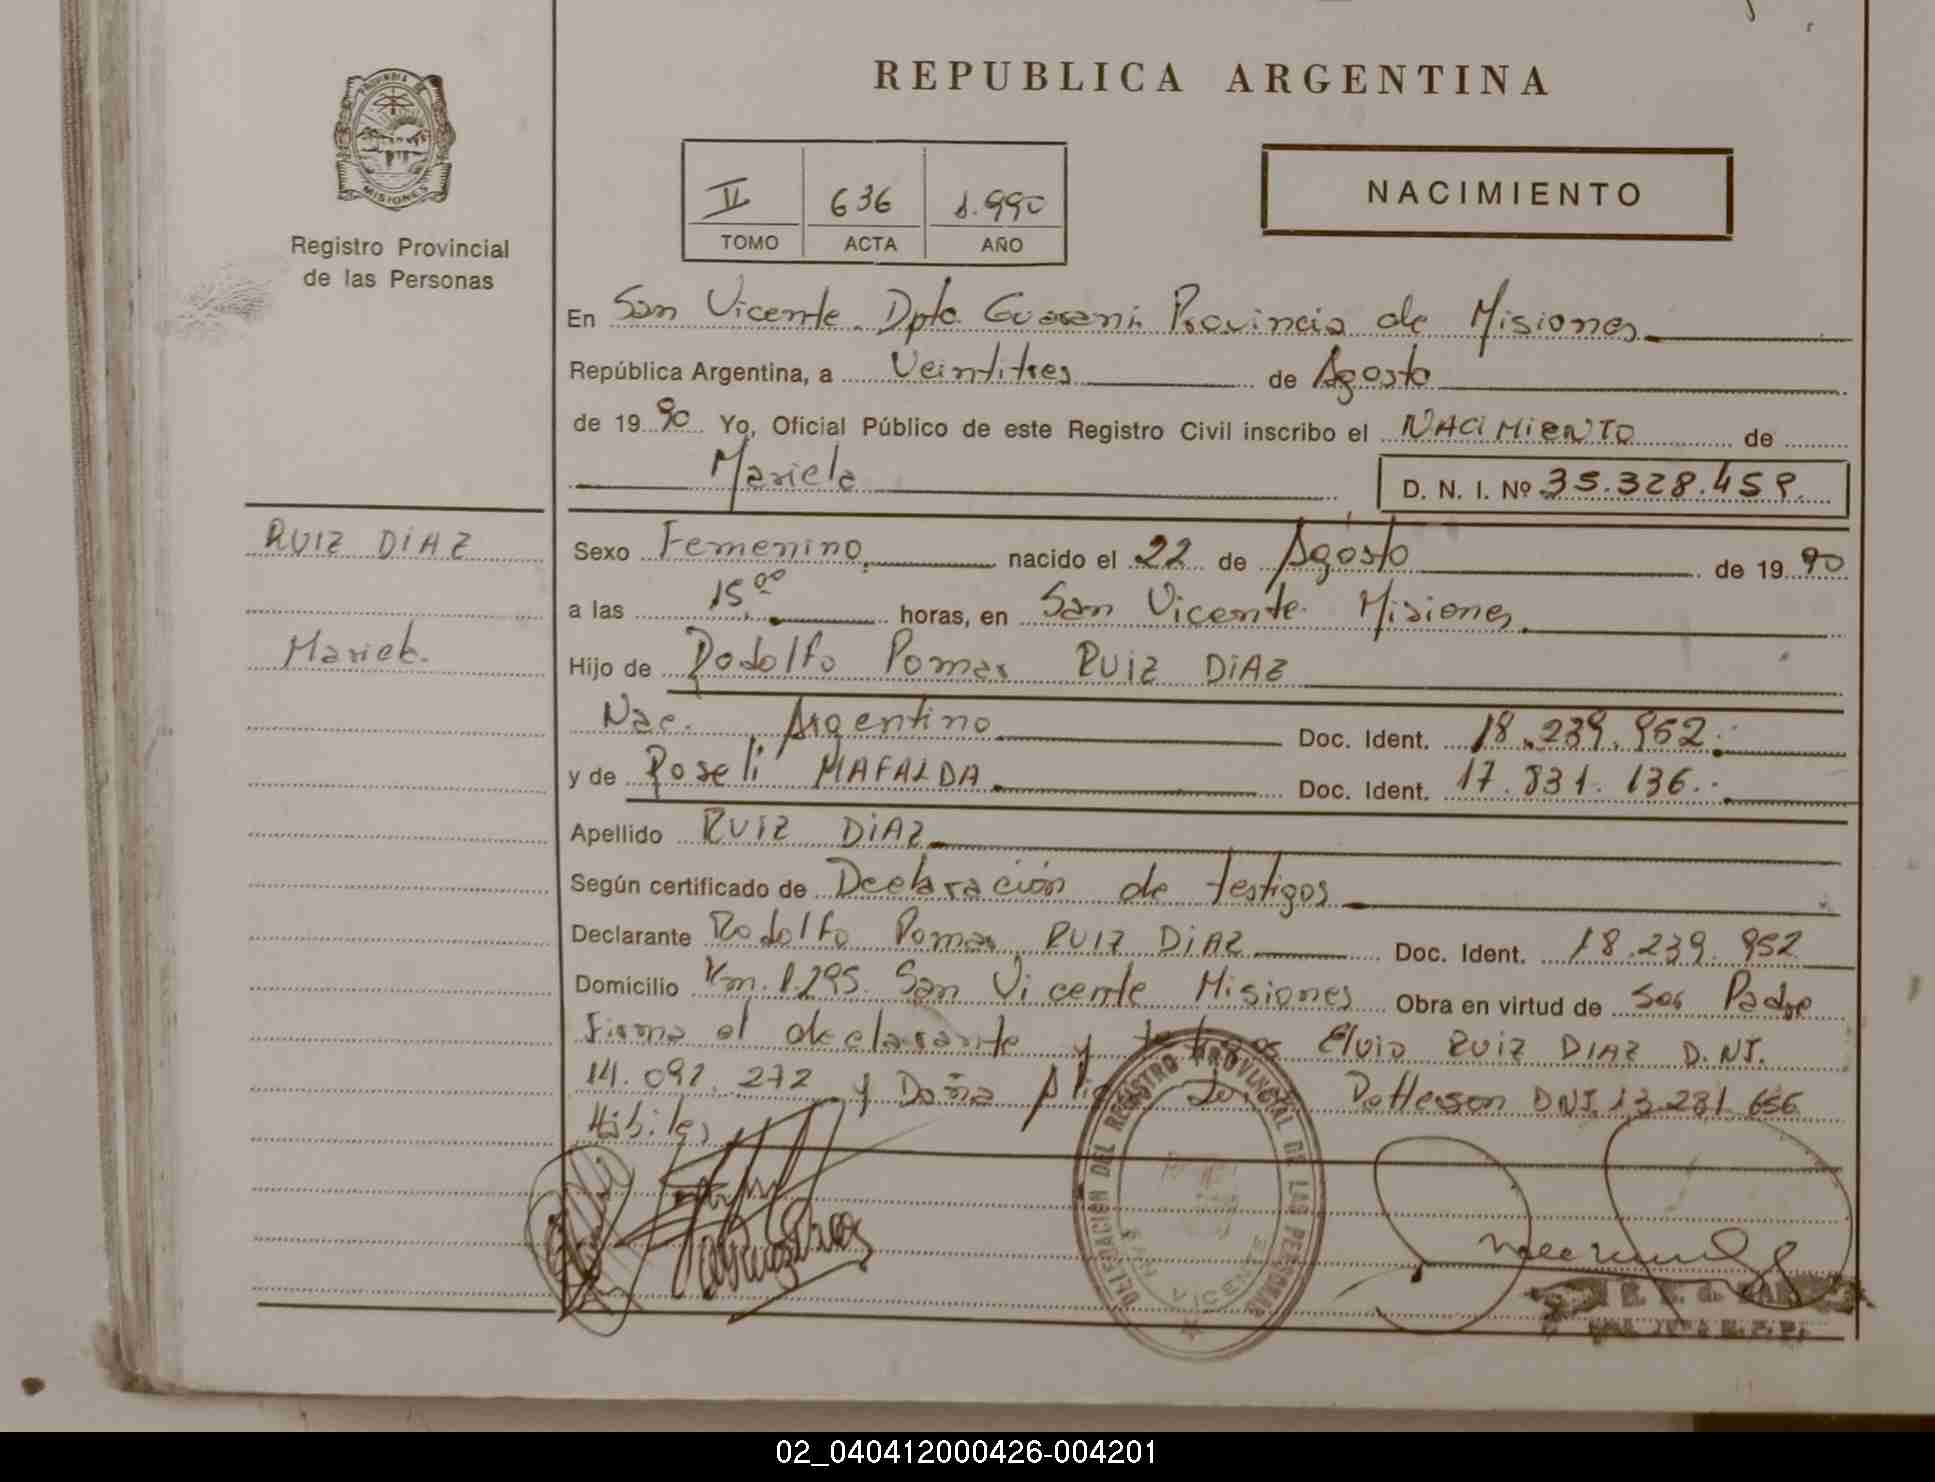 REPUBLICA ARGENTINA
PROVINCIA DE
MISIONES
Registro Provincial
de las Personas
II 636 1.990
TOMO ACTA AÑO
NACIMIENTO
En San Vicente Dpto. Guarani Provincia de Misiones
República Argentina, a Veintitres de Agosto
de 1990 Yo, Oficial Público de este Registro Civil inscribo el NACIMIENTO de
Mariela
D. N. I. Nº 35.328.459.
RUIZ DIAZ
Sexo Femenino nacido el 22 de Agosto de 1990
a las 15,00 horas, en San Vicente Misiones
Mariela
Hijo de Rodolfo Pomar RUIZ DIAZ
Nac. Argentino Doc. Ident. 18.239.952.
y de Roseli MAFALDA Doc. Ident. 17.831.136.
Apellido RUIZ DIAZ
Según certificado de Declaración de testigos
Declarante Rodolfo Pomar RUIZ DIAZ Doc. Ident. 18.239.952
Domicilio Km. 1.295. San Vicente Misiones Obra en virtud de ser Padre
Firma el declarante y testigos Elvio RUIZ DIAZ D.NI.
14.092.272 y Doña DNI.13.281.656
Hábiles
DELEGACION DEL REGISTRO PROVINCIAL DE LAS PERSONAS
SAN VICENTE
02_040412000426-004201